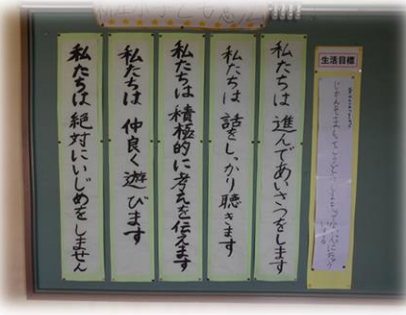 生活目標
私たちは 進んであいさつをします
私たちは 話をしっかり聴きます
私たちは 積極的に考えを伝えます
私たちは 仲良く遊びます
私たちは 絶対にいじめをしません